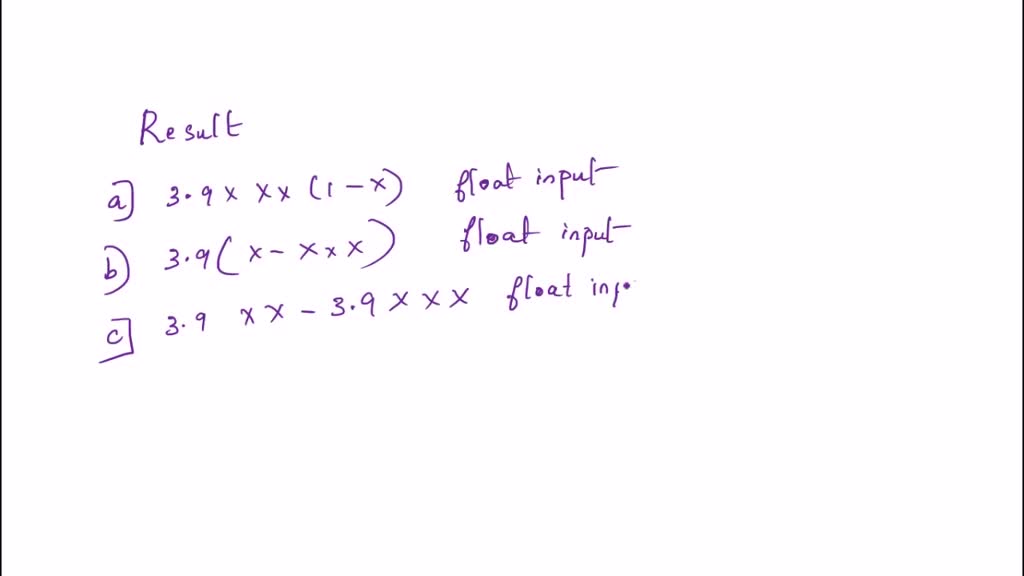 Result
a) 3.9 x x x (1 - x) float input
b) 3.9 ( x - x x x ) float input
c) 3.9 x x - 3.9 x x x float inp